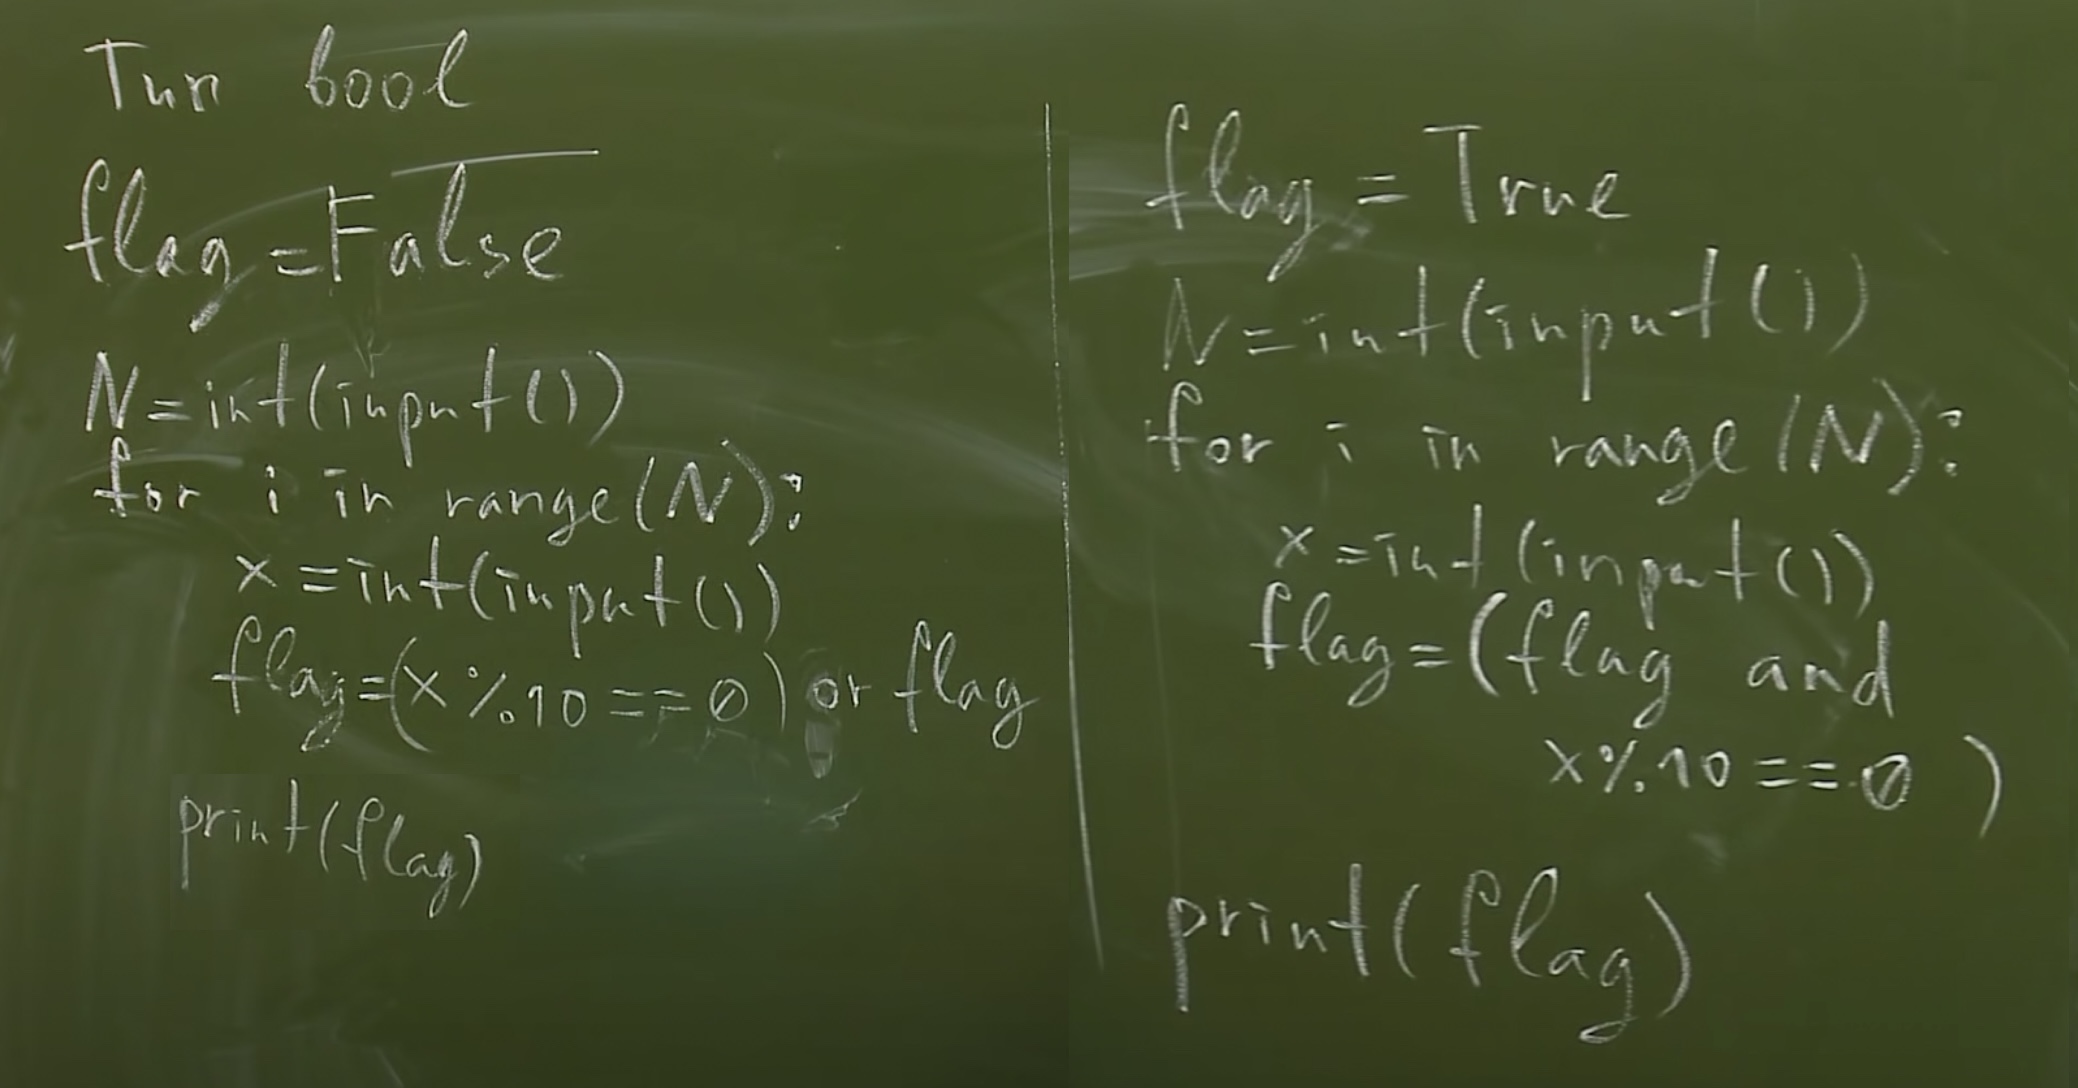 Тип bool
flag=False
N=int(input())
for i in range(N):
x=int(input())
flag=(x%10==0) or flag
print(flag)
flag=True
N=int(input())
for i in range(N):
x=int(input())
flag=(flag and
x%10==0)
print(flag)